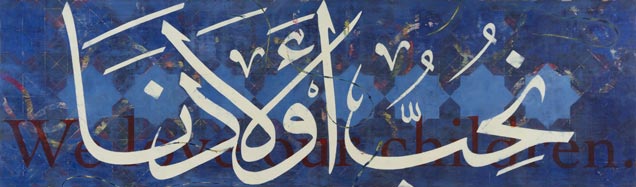 نُحِبُّ أَوْلَادَنَا
We love our children.